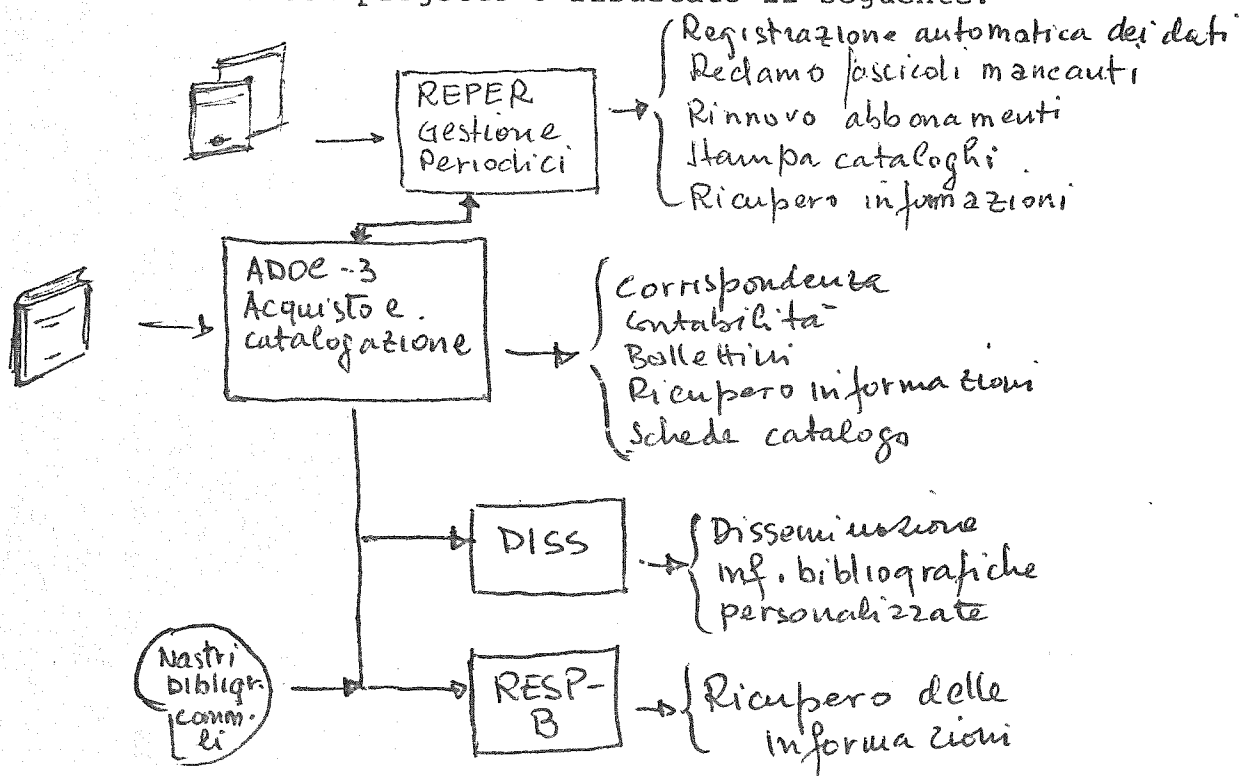 Registrazione automatica dei dati
Reclamo fascicoli mancanti
Rinnovo abbonamenti
Stampa cataloghi
Ricupero informazioni
REPER
Gestione
Periodici
ADOC-3
Acquisto e
catalogazione
Corrispondenza
Contabilità
Bollettini
Ricupero informazioni
Schede catalogo
DISS
Disseminazione
inf. bibliografiche
personalizzate
Nastri
bibliogr.
comm.
li
RESP-
B
Ricupero delle
informazioni